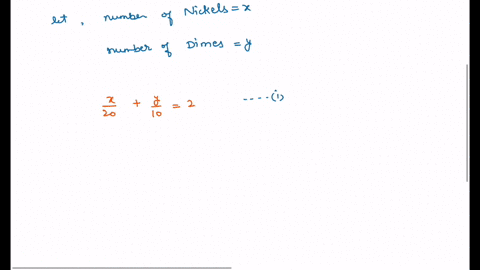 let, number of Nickels = x
number of Dimes = y
x/20 + y/10 = 2 ----(i)